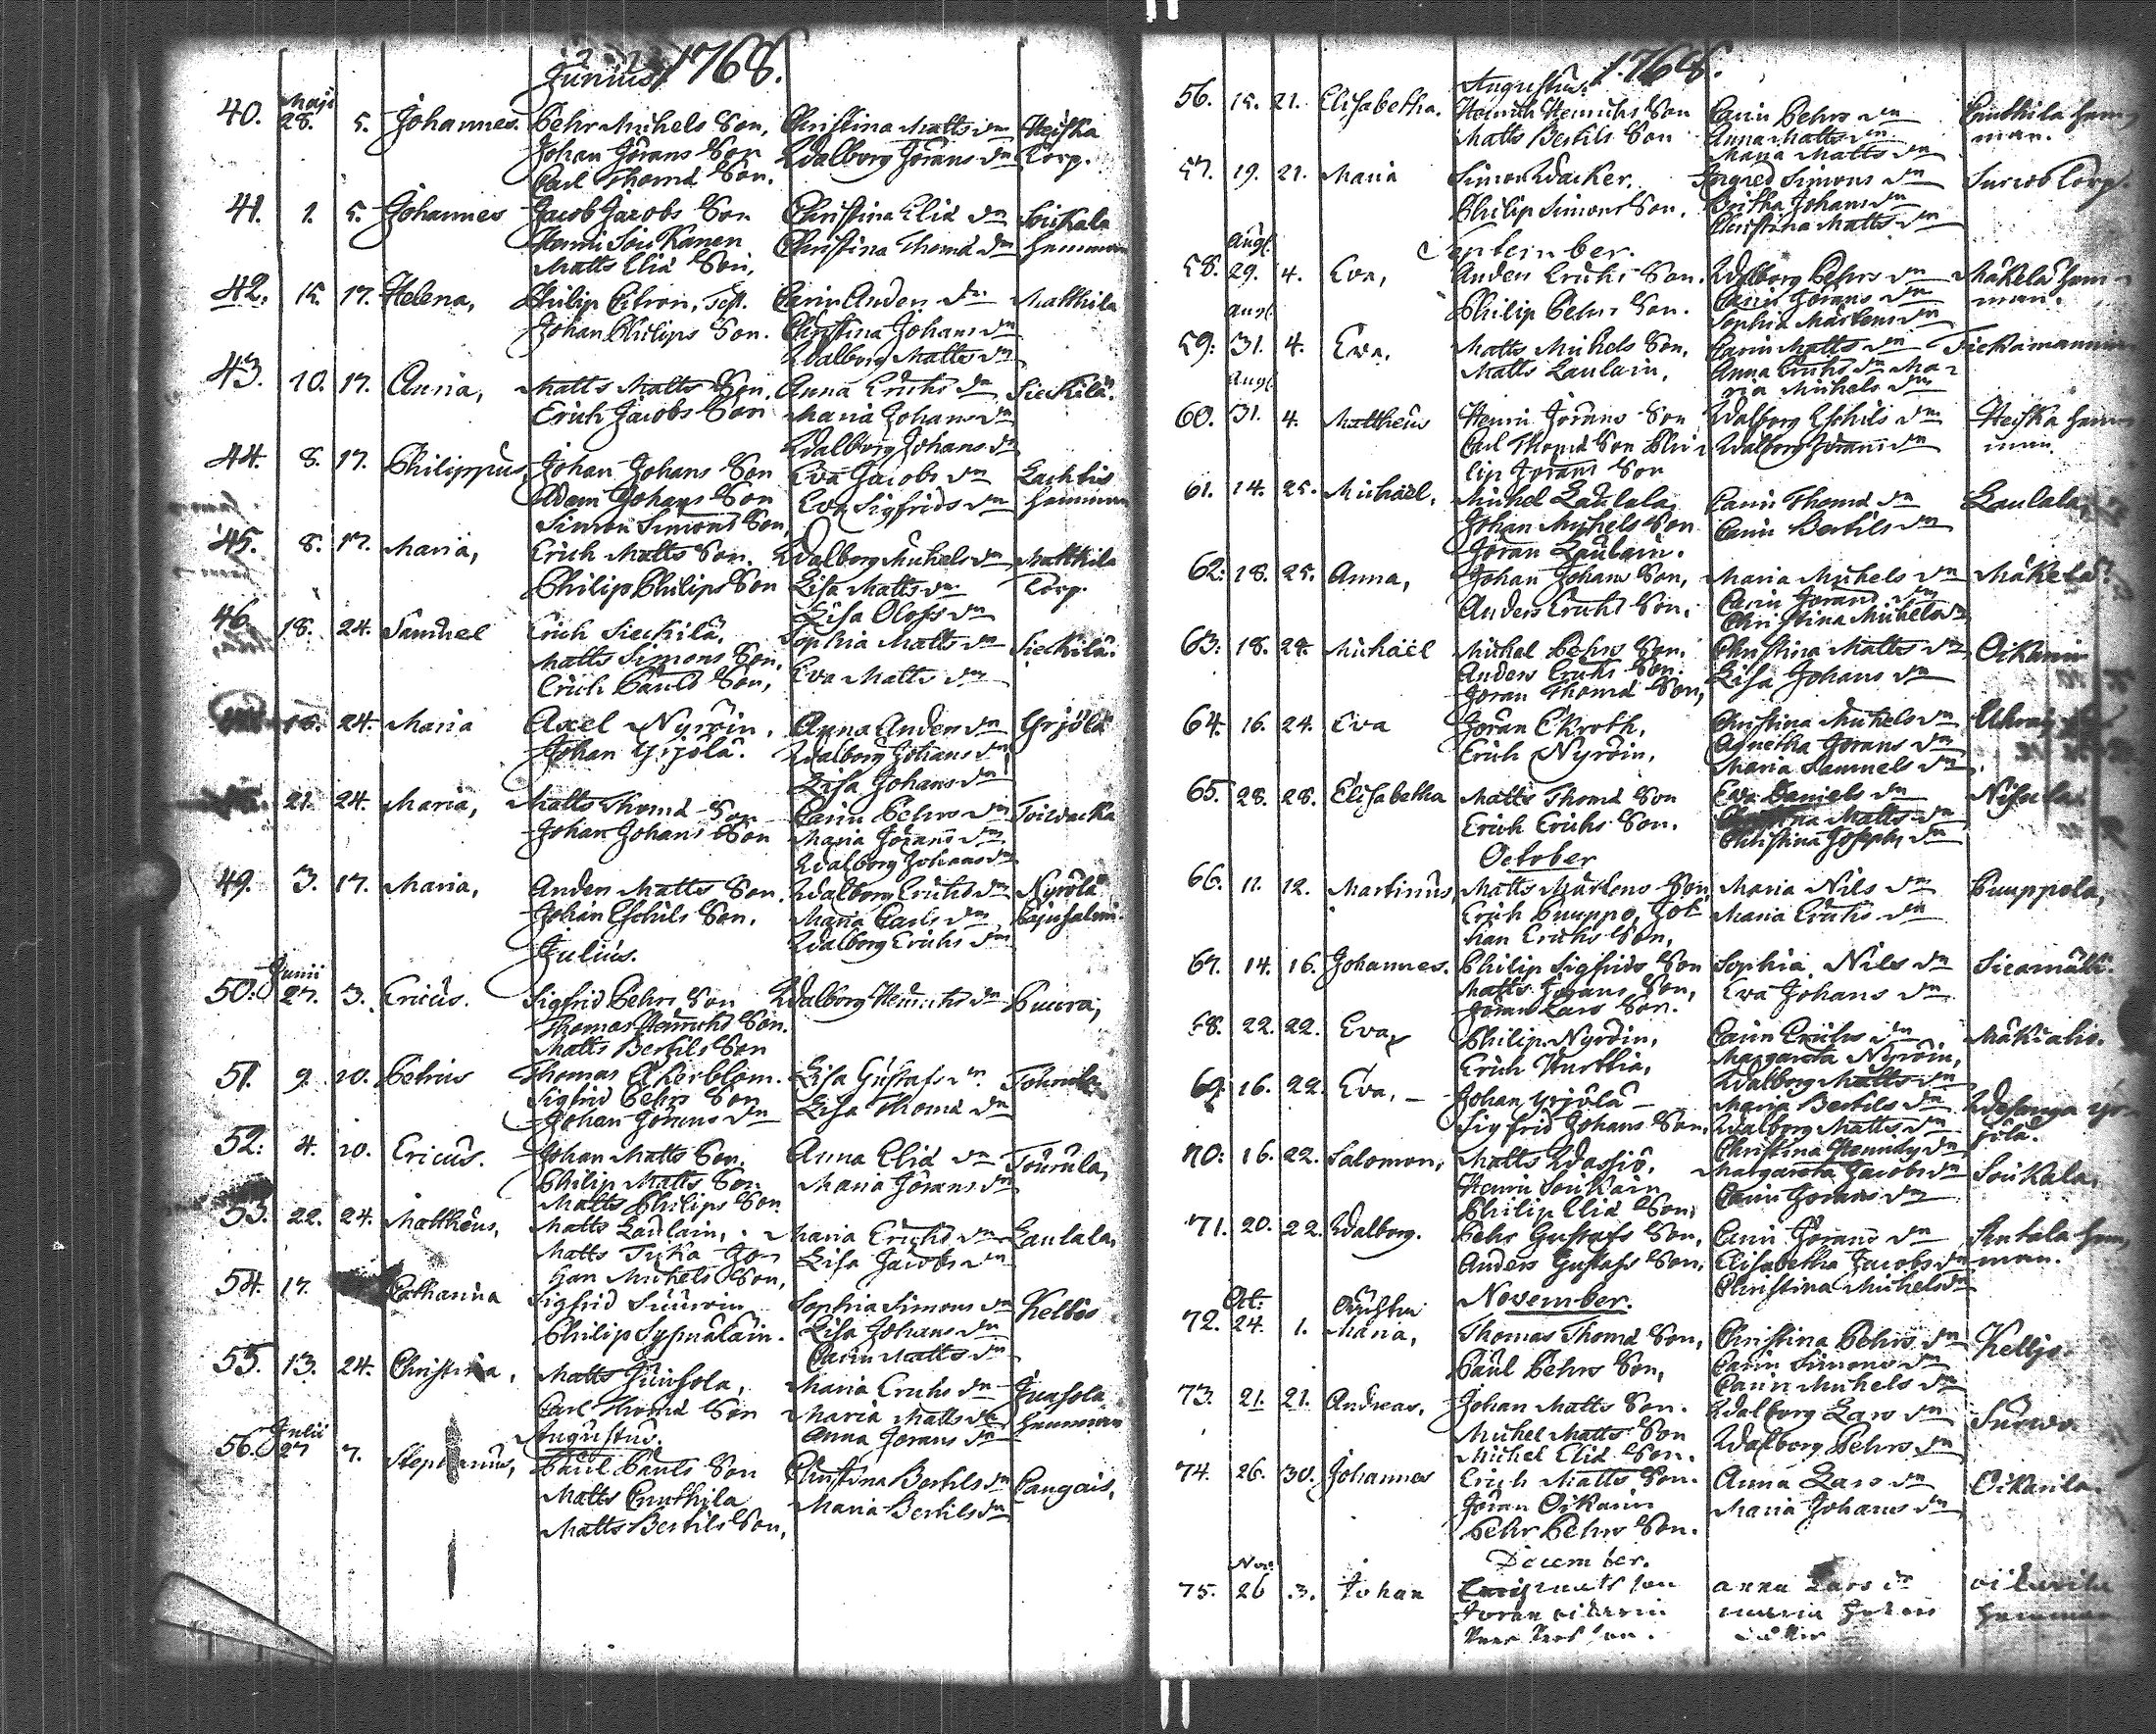 Junius 1768.
Maji
40. 28. 5. Johannes. Pehr Michels Son, Christina Matts dr Heiska
Johan Jörans Son Walborg Jörans dr Torp.
Carl Thomæ Son.
41. 1. 5. Johannes Jacob Jacobs Son Christina Eliæ dr Soikala
Henric Soikanen Christina Thomæ dr hemman
Matts Eliæ Son,
42. 15. 17. Helena, Philip Citron, Carin Anders dr Matthila
Johan Philips Son. Christina Johans dr
Walborg Matts dr
43. 10. 17. Anna, Matts Matts Son, Anna Erichs dr Sieckilä.
Erich Jacobs Son Maria Johans dr
Walborg Johans dr
44. 8. 17. Philippus, Johan Johans Son Eva Jacobs dr Lachtis
Adam Johans Son Eva Sigfrids dr hemman
Simon Simons Son,
45. 8. 17. Maria, Erich Matts Son. Walborg Michels dr Matthila
Philip Philips Son Lisa Matts dr Torp.
Lisa Olofs dr
46. 18. 24. Samuel Erich Sieckilä, Sophia Matts dr Sieckilä.
Matts Simons Son, Eva Matts dr
Erich Pauls Son,
24. Maria Axel Nyröin, Anna Anders dr Yrjölä
Johan Yrjölä. Walborg Johans dr
Lisa Johans dr
21. 24. Maria, Matts Thomæ Son Carin Pehrs dr Toiwacka
Johan Johans Son Maria Jörans dr
Walborg Johans dr
49. 3. 17. Maria, Anders Matts Son. Walborg Erichs dr Nyrölä
Johan Eschils Son. Maria Pauls dr
Walborg Erichs dr
Julius.
Junii
50. 27. 3. Ericus. Sigfrid Pehrs Son Walborg Henrichs dr Puura,
Thomas Henrichs Son.
Matts Bertils Son
51. 9. 10. Petrus Thomas Åkerblom. Lisa Gustafs dr. Tourula
Sigfrid Pehrs Son Lisa Thomæ dr
Johan Jörans dr
52. 4. 10. Ericus. Johan Matts Son. Anna Eliæ dr Tourula,
Philip Matts Son Maria Jörans dr
Matts Philips Son
53. 22. 24. Mattheus, Matts Laulain, Maria Erichs dr Laulala,
Matts Tika Jo- Lisa Jacobs dr
han Michels Son,
54. 17. Catharina Sigfrid Suuroin Sophia Simons dr Keljo
Philip Sysmäläin. Lisa Johans dr
Carin Matts dr
55. 13. 24. Christina, Matts Juusola, Maria Erichs dr Juusola
Carl Thomæ Son Maria Matts dr hemman
Augustus. Anna Jörans dr
Julii
56. 27 7. Stephanus, Paul Pauls Son Christina Bertils dr Cangais,
Matts Cnuthila Maria Bertils dr
Matts Bertils Son,
1768.
Augustus.
56. 15. 21. Elisabetha. Henrich Henrichs Son Carin Pehrs dr Cnuthila hem
Matts Bertils Son Anna Matts dr man.
Maria Matts dr
57. 19. 21. Maria Simon Wacker. Ingred Simons dr Surois Torp.
Philip Simons Son. Britha Johans dr
Christina Matts dr
September.
Aug.
58. 29. 4. Eva, Anders Erichs Son. Walborg Pehrs dr Mäkelä hem-
Philip Pehrs Son. Carin Jörans dr man.
Sophia Mårtens dr
Aug.
59. 31. 4. Eva, Matts Michels Son, Carin Matts dr
Matts Laulain, Anna Erichs dr Ma-
ria Michels dr
Aug.
60. 31. 4. Mattheus Henric Jörans Son Walborg Eschils dr Heiska hem
Carl Thomæ Son Phi- Walborg Jörans dr man.
lip Jörans Son
61. 14. 25. Michaël. Michel Laulala, Carin Thomæ dr Laulala,
Johan Michels Son Carin Bertils dr
Jöran Laulain.
62. 18. 25. Anna, Johan Johans Son, Maria Michels dr Mäkelä.
Anders Erichs Son. Carin Jörans dr
Christina Michels dr
63. 18. 24. Michaël Michel Pehrs Son. Christina Matts dr Oikarin
Anders Erichs Son. Lisa Johans dr
Jöran Thomæ Son,
64. 16. 24. Eva Jöran Ekroth, Christina Michels dr
Erich Nyröin, Agnetha Jörans dr
Maria Samuels dr
65. 28. 28. Elisabetha Matts Thomæ Son Eva Daniels dr Nisula
Erich Erichs Son. Matts dr
Christina Josephs dr
October
66. 11. 12. Martinus, Matts Mårtens Son Maria Nils dr Puuppola,
Erich Puuppo, Jo- Maria Erichs dr
han Erichs Son,
67. 14. 16. Johannes. Philip Sigfrids Son Sophia Nils dr
Matts Jörans Son, Eva Johans dr
Jöran Lars Son.
68. 22. 22. Eva, Philip Nyröin, Carin Erichs dr Mäkiaho.
Erich Hurthia, Margareta Nyröin,
Walborg Matts dr
69. 16. 22. Eva. Johan Yrjölä Maria Bertils dr Wesanga Yr-
Sigfrid Johans Son, Walborg Matts dr jölä.
Christina Henrichs dr
70. 16. 22. Salomon, Matts Wassiö. Margareta Jacobs dr Soikkala,
Henric Soikain Carin Jörans dr
Philip Eliæ Son,
71. 20. 22. Walborg. Pehr Gustafs Son, Carin Jörans dr hem
Anders Gustafs Son, Elisabetha Jacobs dr man.
Christina Michels dr
November.
Oct.
72. 24. 1. Maria, Thomas Thomæ Son, Christina Pehrs dr Keljo
Paul Pehrs Son, Carin Simons dr
Carin Michels dr
73. 21. 21. Andreas. Johan Matts Son. Walborg Lars dr Surois.
Michel Matts Son Walborg Pehrs dr
Michel Eliæ Son.
74. 26. 30. Johannes Erich Matts Son. Anna Lars dr Oikarila.
Jöran Oikarin Maria Johans dr
Pehr Pehrs Son.
December.
Nov.
75. 26 3. Johan Erich mats son anna Lars dr oikarila
Jöran oikarin maria Johans hemman